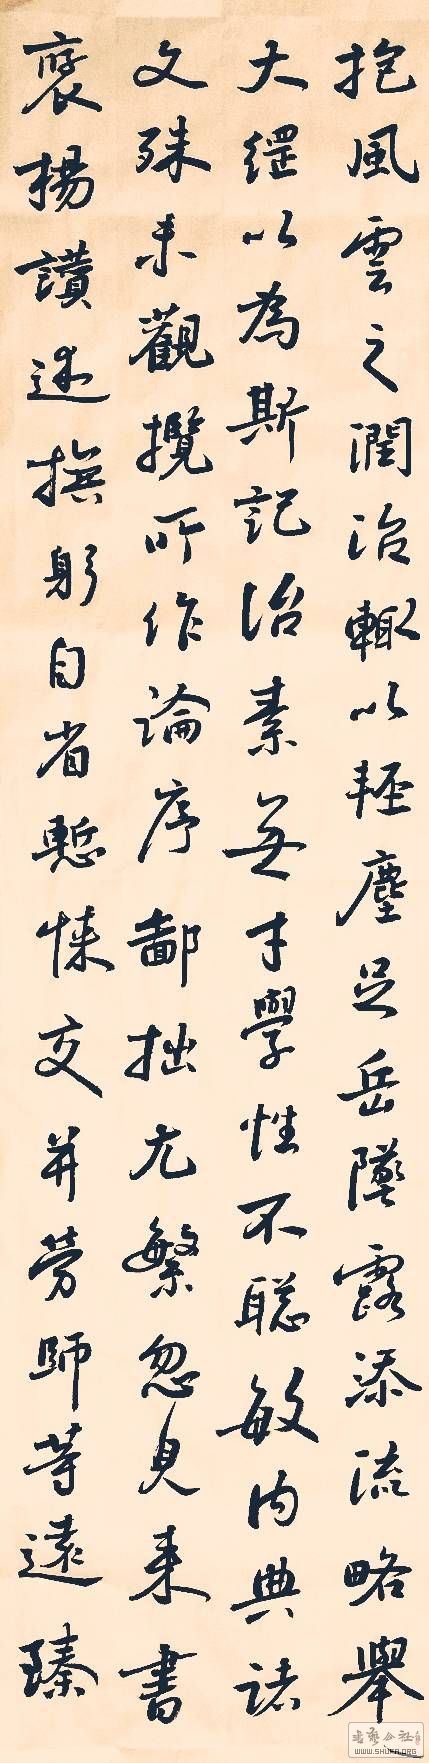 抱風雲之潤治輒以輕塵足岳墜露添流略舉
大綱以為斯記治素無才學性不聰敏內典諸
文殊未觀攬所作論序鄙拙尤繁忽見來書
褒揚讚述撫躬自省慙悚交并勞師等遠臻
書藝公社
WWW.SHUFA.ORG